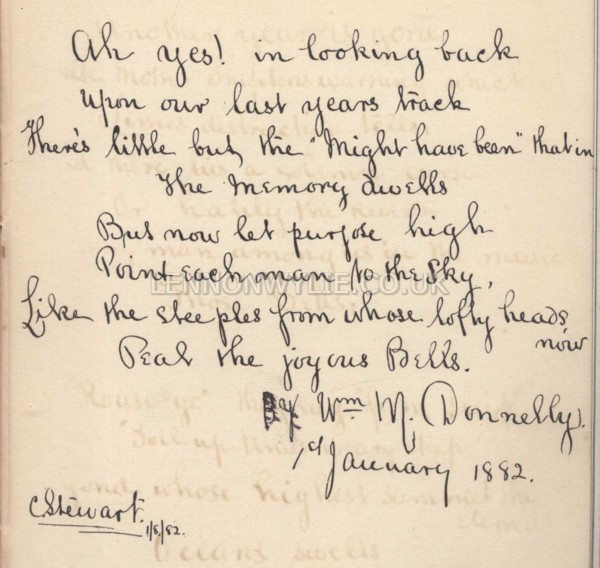 Ah yes! in looking back
Upon our last years track
There's little but, the "Might have been" that in
The Memory dwells
But now let purpose high
Point each man to the sky,
LENNONWYLIE.CO.UK
Like the steeples from whose lofty heads
now
Peal the joyous Bells.
By Wm M. Donnelly.
1st January 1882.
C Stewart.
1/5/82.